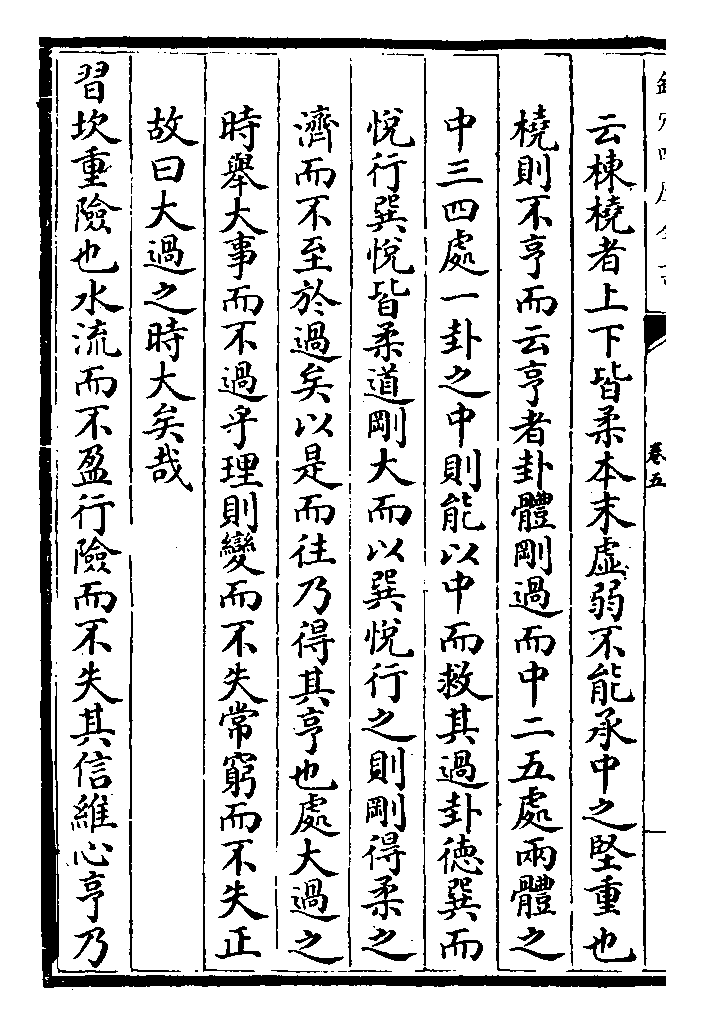 云棟橈者上下皆柔本末虛弱不能承中之堅重也
橈則不亨而云亨者卦體剛過而中二五處兩體之
中三四處一卦之中則能以中而救其過卦德巽而
悅行巽悅皆柔道剛大而以巽悅行之則剛得柔之
濟而不至於過矣以是而往乃得其亨也處大過之
時舉大事而不過乎理則變而不失常窮而不失正
故曰大過之時大矣哉
習坎重險也水流而不盈行險而不失其信維心亨乃
卷五